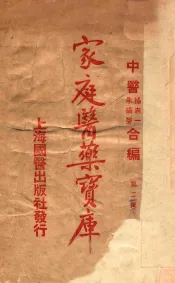 中醫
合編
家庭醫藥寶庫
上海國醫出版社發行